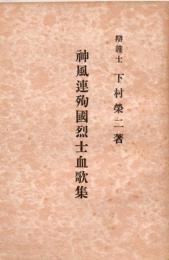 辯護士 下村榮二著
神風連殉國烈士血歌集